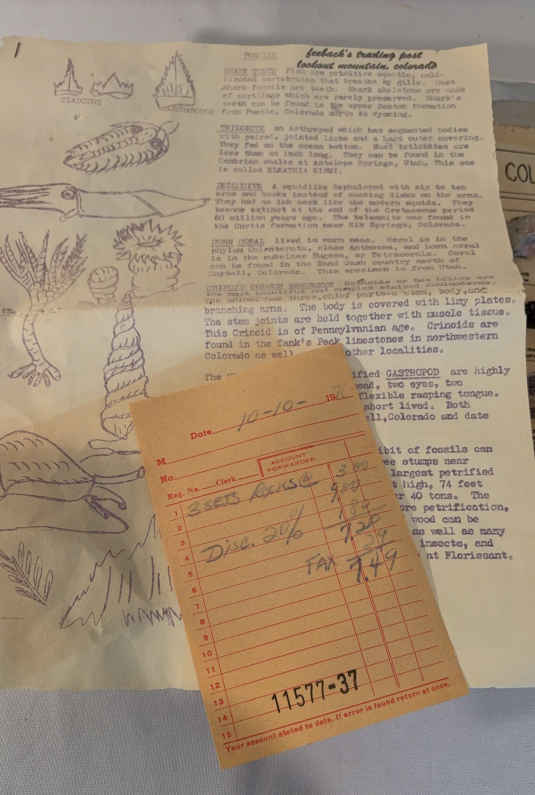 1
FOSSILS
feeback's trading post
lookout mountain, colorado
SHARK TEETH Fish are primitive aquatic, cold-
blooded vertebrates that breathe by gills. Most
shark fossils are teeth. Shark skeletons are made
of cartilage which are rarely preserved. Shark's
teeth can be found in the upper Benton formation
from Pueblo, Colorado north to Wyoming.
CLADODUS
TRILOBITE an Arthropod which has segmented bodies
with paired, jointed limbs and a hard outer covering.
They fed on the ocean bottom. Most trilobites are
less than an inch long. They can be found in the
Cambrian shales at Antelope Springs, Utah. This one
is called ELRATHIA KINGI.
A squidlike Cephalopod with six to ten
arms and hooks instead of sucking disks on the arms.
They had an ink sack like the modern squids. They
became extinct at the end of the Cretaceous period
60 million years ago. The Belemnite was found in
the Curtis formation near Elk Springs, Colorado.
HORN CORAL lived in warm seas. Coral is in the
phylum Coelenterata, class Anthozoa, and horn coral
is in the subclass Rugosa, or Tetracoralla. Coral
can be found in the Sand Dunk country north of
Colorado. This specimen is from Utah.
branching arms. The body is covered with limy plates.
The stem joints are held together with muscle tissue.
This Crinoid is of Pennsylvanian age. Crinoids are
found in the Tank's Peak limestones in northwestern
Colorado as well other localities.
The
ified GASTROPOD are highly
ead, two eyes, two
flexible rasping tongue.
short lived. Both
ell, Colorado and date
ibit of fossils can
ee stumps near
largest petrified
t high, 74 feet
r 40 tons. The
ore petrification,
wood can be
as well as many
insects, and
nt Florissant.
COL
Date 10-10- 19
M
No.
Reg. No. Clerk ACCOUNT FORWARDED
1 3 sets Rocks @ 3.00
2 9.00
3 1.80
4 Disc. 20% 7.20
5 TAX .29
6 7.49
7
8
9
10
11
12
13
14
15
11577-37
Your account stated to date. If error is found return at once.